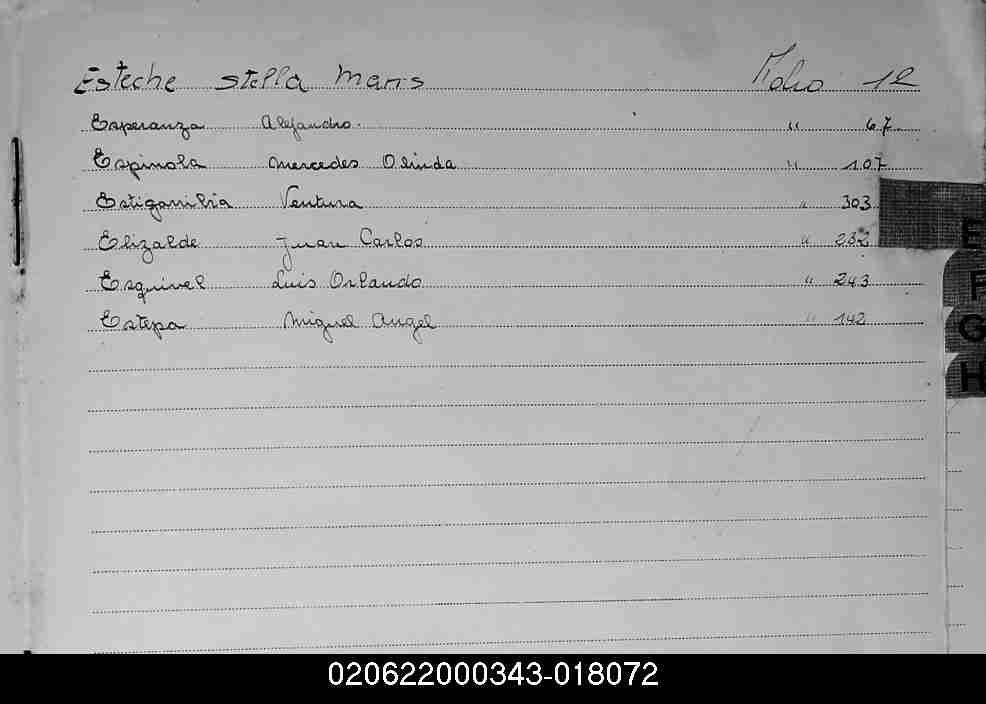 Esteche Stella Maris Folio 12
Esperanza Alejandro. " 67
Espinola Mercedes Olinda " 107
Estigarribia Ventura " 303
Elizalde Juan Carlos " 232
Esquivel Luis Orlando " 243
Estepa Miguel Angel " 142
E
F
G
H
020622000343-018072